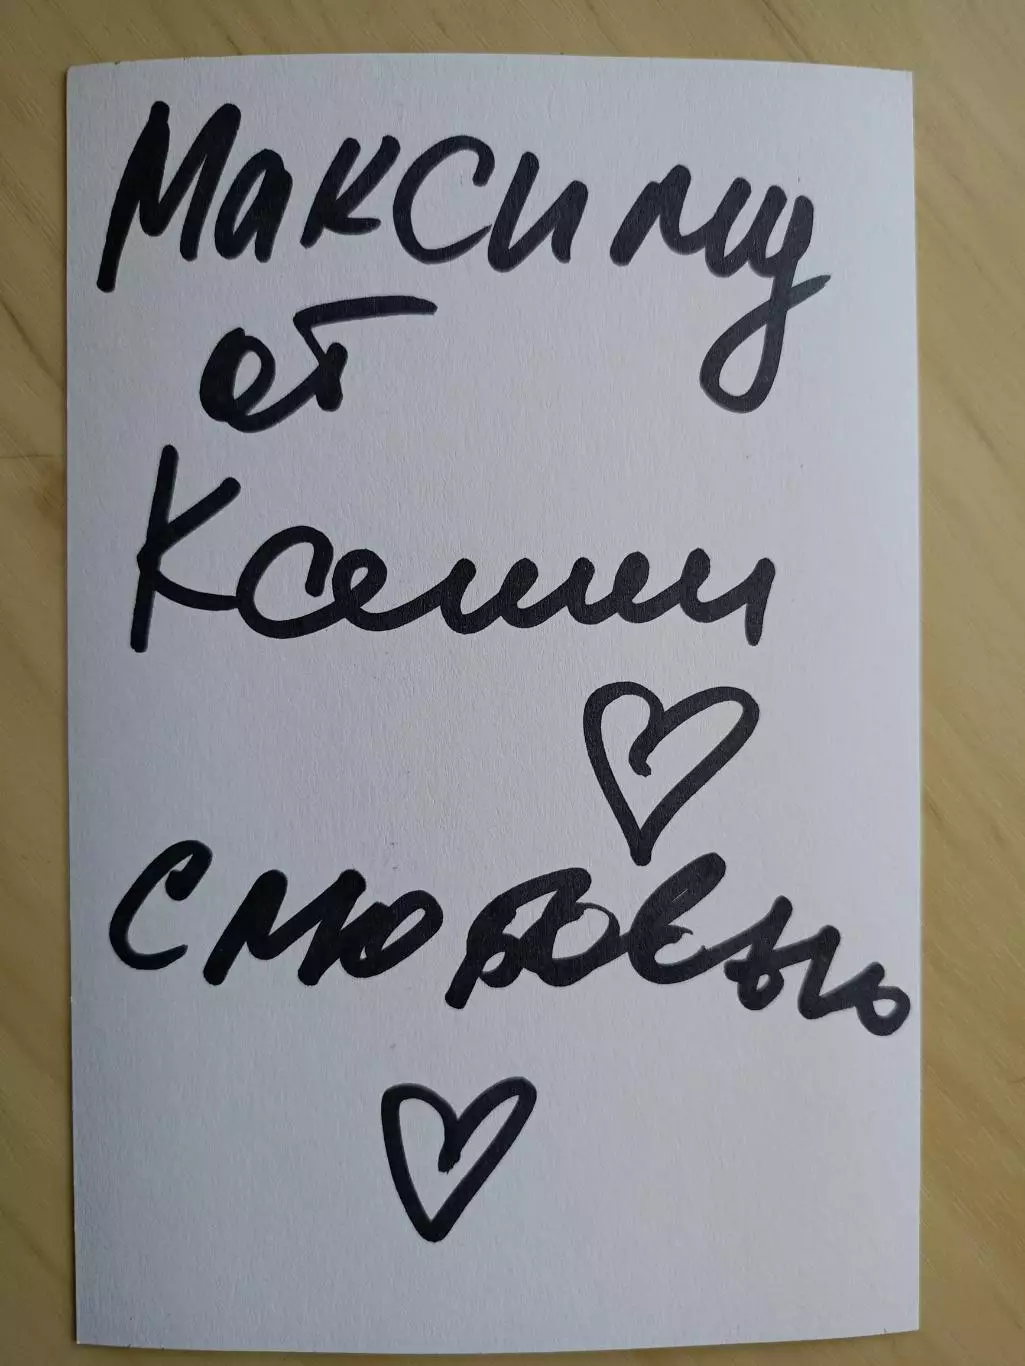 Максиму
от
Ксении
С любовью